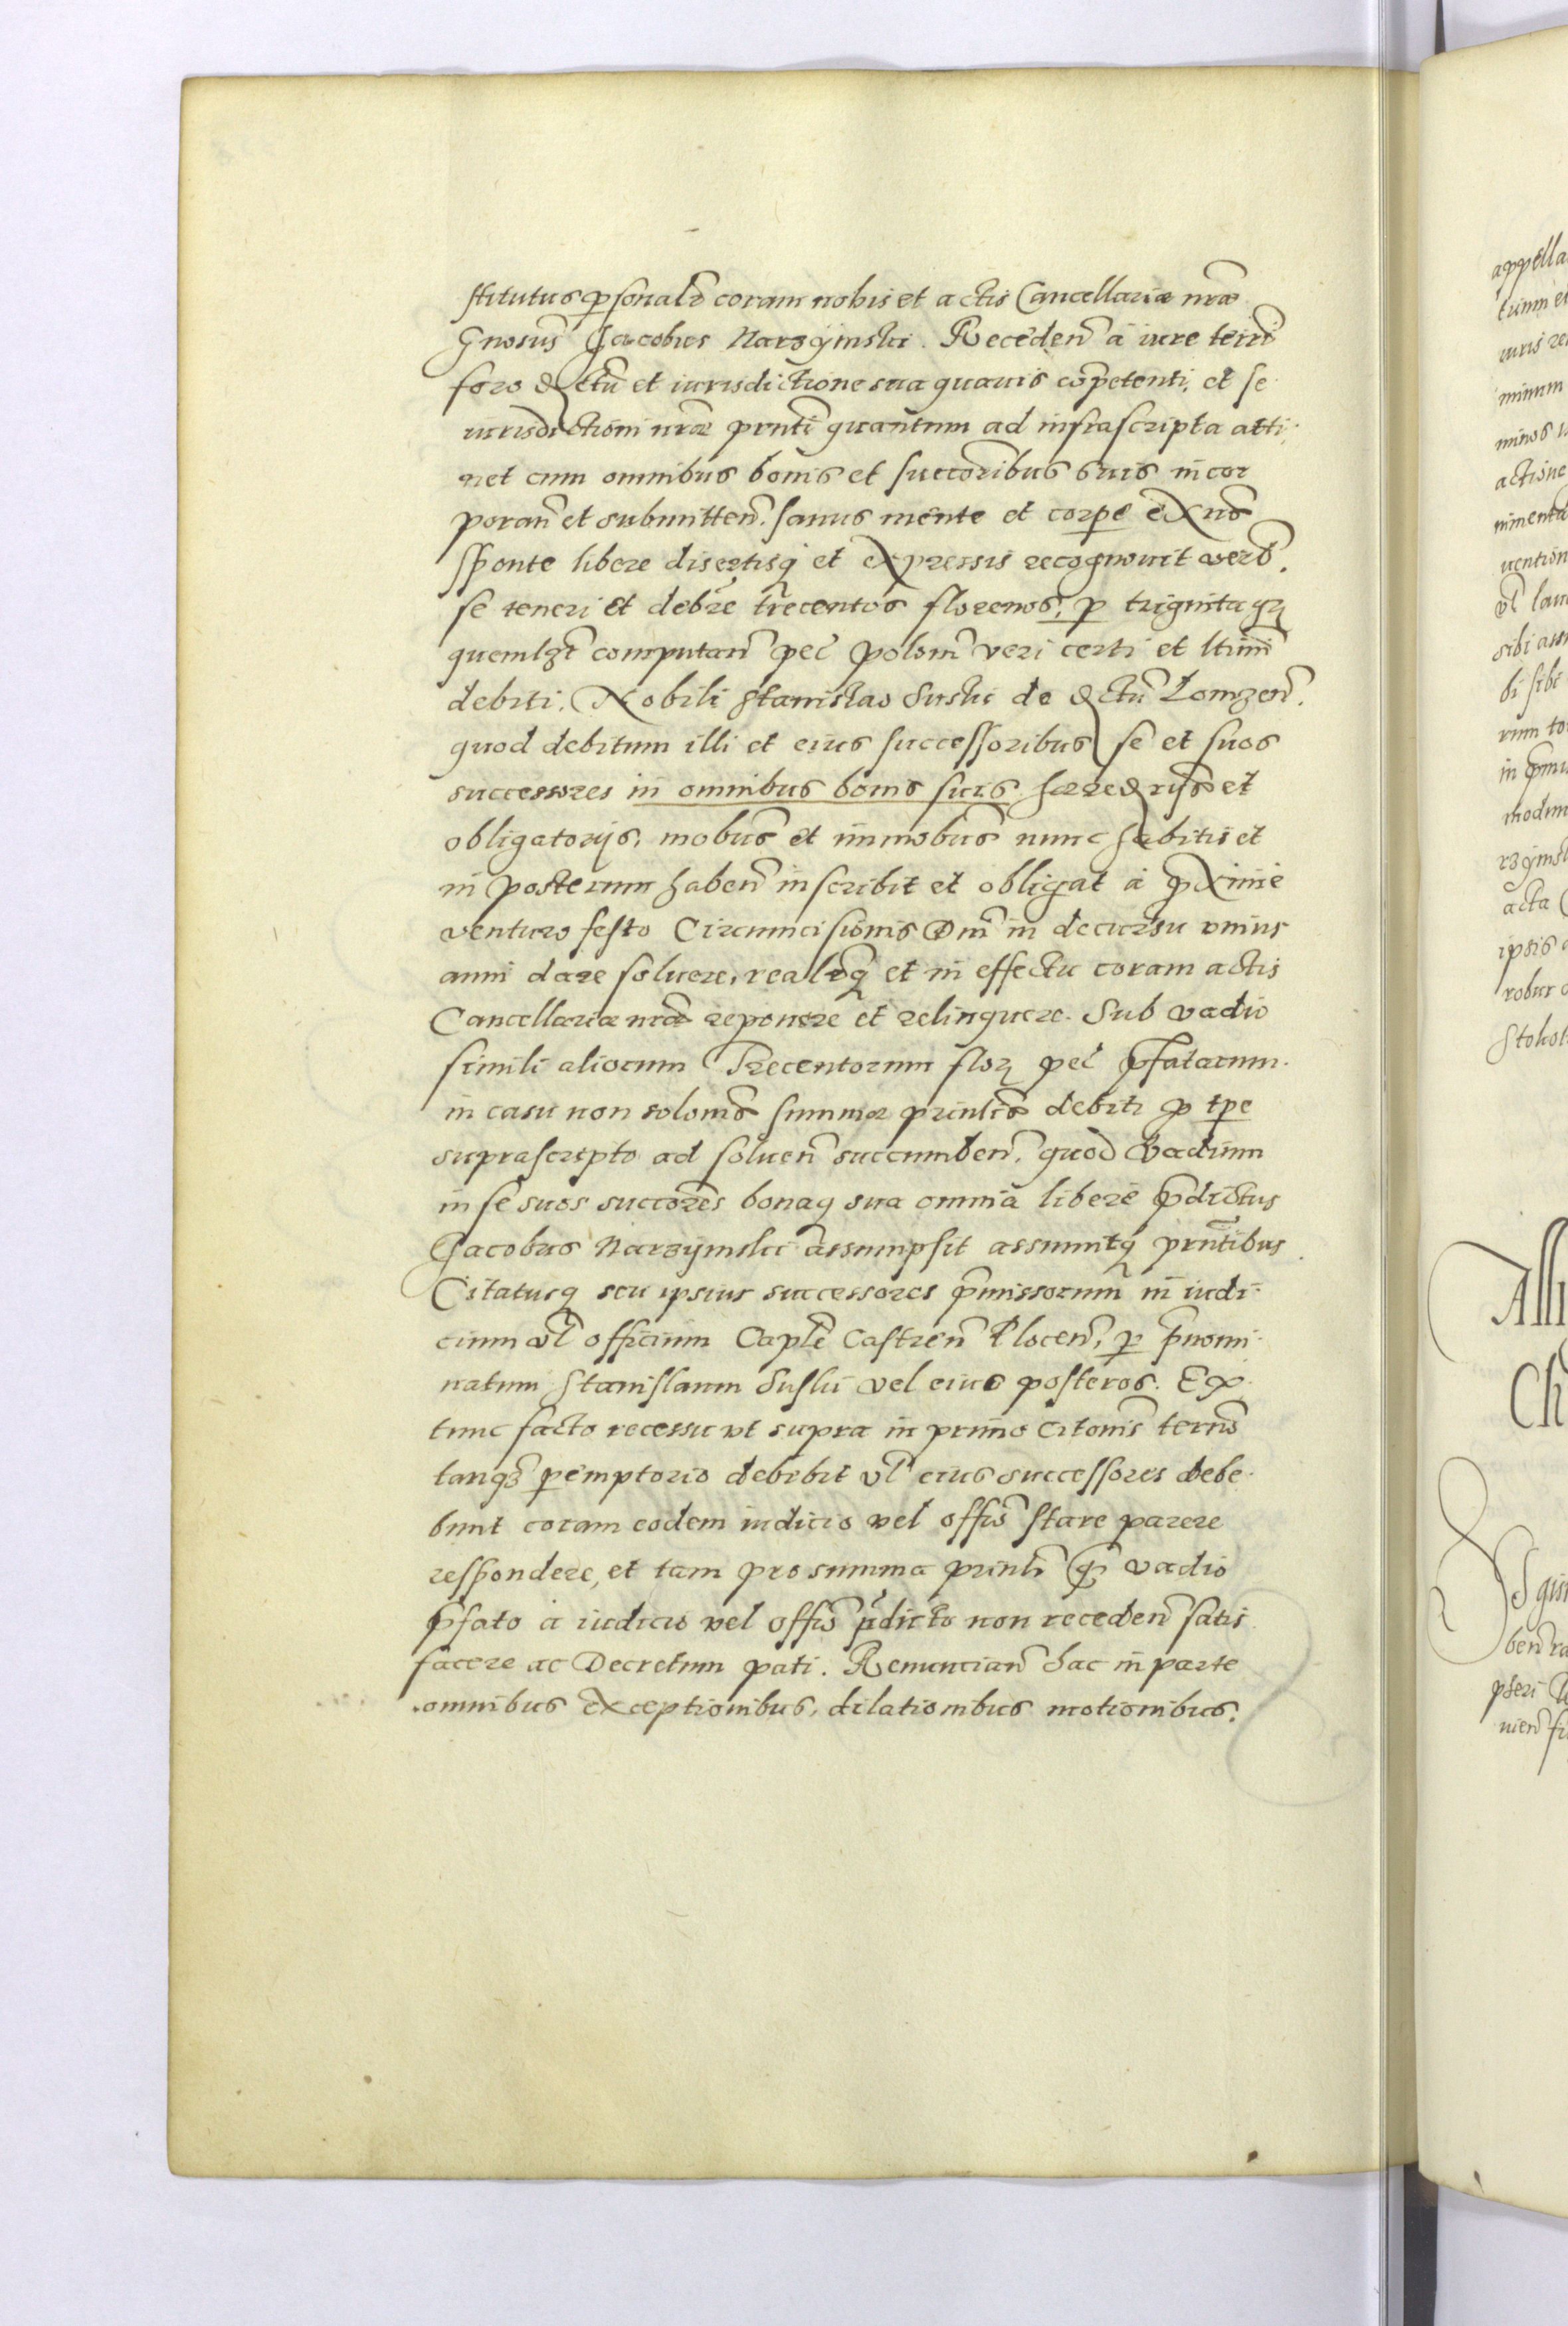 stitutus psonalr coram nobis et actis Cancellariæ nræ
Gnosus Jacobus Narzÿmski. Receden à iure terri
foro districtu et iurisdictione sua quauis competenti, et se
iurisdictioni nræ pnti quantum ad infrascripta atti
net cum omnibus bonis et succoribus suis incor
poran et submitten. Sanus mente et corpe exns
sponte libere disertisq et expressis recognouit verb.
se teneri et debre trecentos florenos, p triginta gr
quemlzt computan pec polon veri certi et ltimi
debiti. Nobili Stanislao Suski de districtu Lomzen.
quod debitum illi et eius successoribus se et suos
successores in omnibus bonis suis hæredrijs et
obligatorijs, mobus et immobus nunc habitis et
in posterum haben inscribit et obligat à proxime
venturo festo Circumcisionis Dni in decursu vnius
anni dare soluere, realrq et in effectu coram actis
Cancellariæ nræ reponere et relinquere. Sub vadio
simili aliorum Trecentorum flor pec pfatarum.
in casu non solonis summæ prinlis debiti p tpe
suprascripto ad soluen succumben. quod Vadium
in se suos succores bonaq sua omnia libere pdictus
Jacobus Narzÿmski assumpsit assumitq prntibus
Citatusq seu ipsius successores pmissorum in iudi-
cium vl officium Captle Castren Plocen, p pnomi-
natum Stanislaum Suski vel eius posteros. Ex
tunc facto recessu vt supra in primo citonis termo
tanq pemptorio debebit vl eius successores debe-
bunt coram eodem iudicio vel offio stare parere
respondere, et tam pro summa prinli q vadio
pfato à iudicio vel offio pdicto non receden satis
facere ac Decretum pati. Renuncian hac in parte
omnibus exceptionibus, dilationibus motionibus.
appella
tum et
iuris re
minum
minos
actione
nimenta
uention
vl lau
sibi
bi sibi
rum to
in pmi
modum
rzÿms
acta
ipsis
robur
Stokol
Alli
Ch
Sigis
ben
pteri
nien